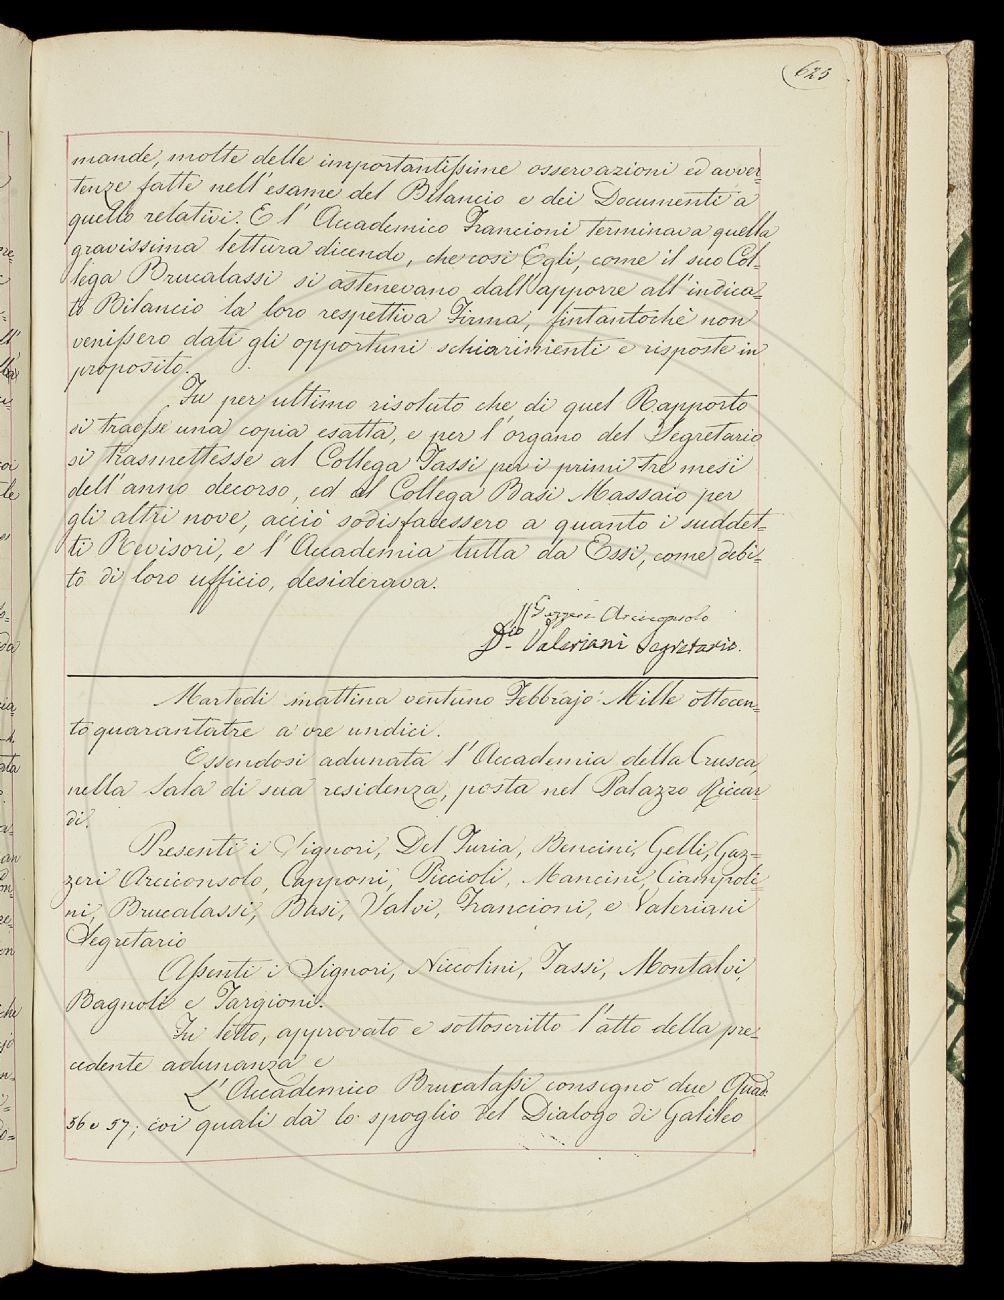 625
mande, molte delle importantissime osservazioni ed avver=
tenze fatte nell'esame del Bilancio e dei Documenti a
quello relativi. E l'Accademico Francioni terminava quella
gravissima lettura dicendo, che così Egli, come il suo Col=
lega Brucalassi si astenevano dall'apporre all'indica=
to Bilancio la loro respettiva Firma, fintantochè non
venissero dati gli opportuni schiarimenti e risposte in
proposito.
Fu per ultimo risoluto che di quel Rapporto
si traesse una copia esatta, e per l'organo del Segretario
si trasmettesse al Collega Tassi per i primi tre mesi
dell'anno decorso, ed al Collega Basi Massaio per
gli altri nove, acciò sodisfacessero a quanto i suddet=
ti Revisori, e l'Accademia tutta da Essi, come debi=
to di loro ufficio, desiderava.
Gazzeri Arciconsolo
Valeriani Segretario.
Martedì mattina ventuno Febbrajo Mille ottocen=
to quarantatre a ore undici.
Essendosi adunata l'Accademia della Crusca,
nella Sala di sua residenza, posta nel Palazzo Riccar=
di.
Presenti i Signori, Del Furia, Bencini, Gelli, Gaz=
zeri Arciconsolo, Capponi, Piccioli, Mancini, Ciampoli=
ni, Brucalassi, Basi, Valvi, Francioni, e Valeriani
Segretario
Assenti i Signori, Niccolini, Tassi, Montalvi,
Bagnoli e Targioni.
Fu letto, approvato e sottoscritto l'atto della pre=
cedente adunanza e
L'Accademico Brucalassi consegnò due Quad:
56 e 57; coi quali dà lo spoglio del Dialogo di Galileo